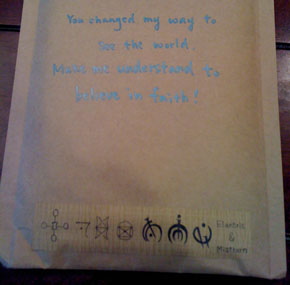 You changed my way to
see the world.
Make me understand to
believe in faith!
Electric
&